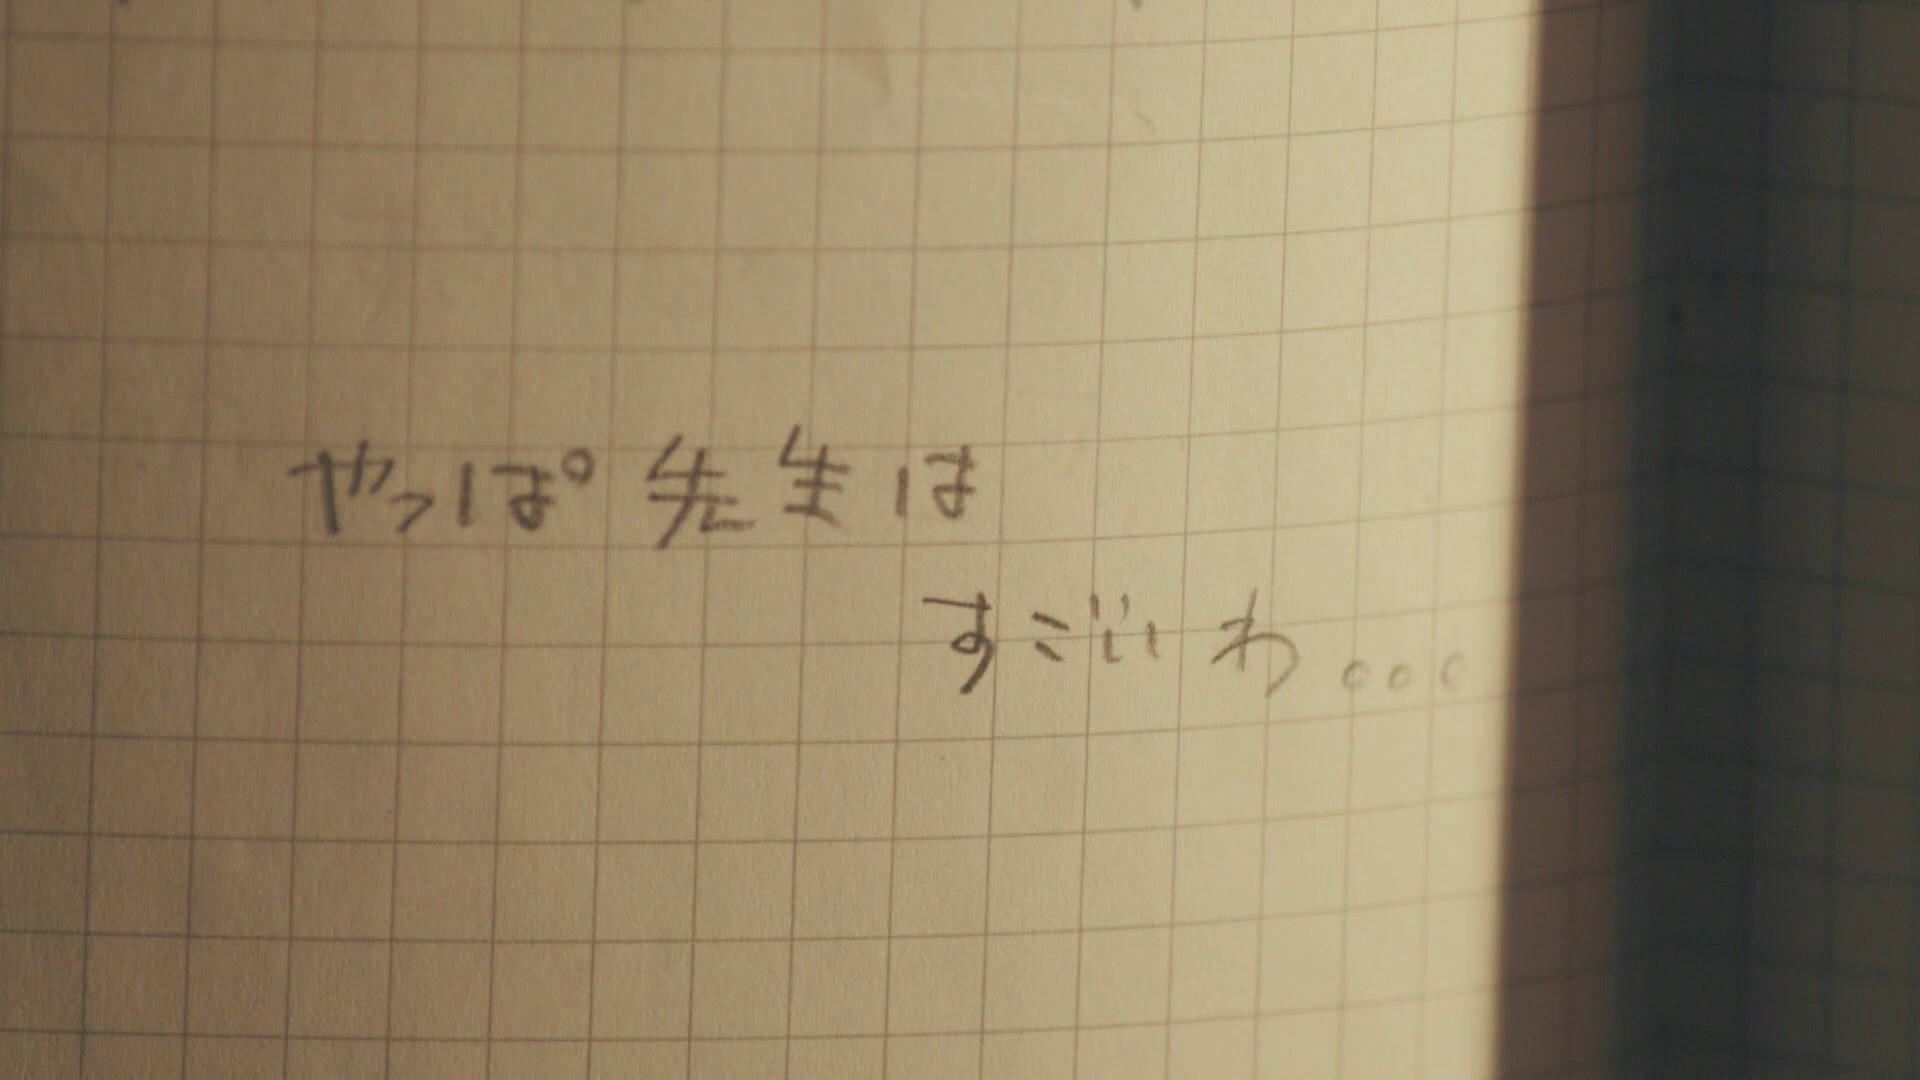 やっぱ先生は
すごいわ。。。